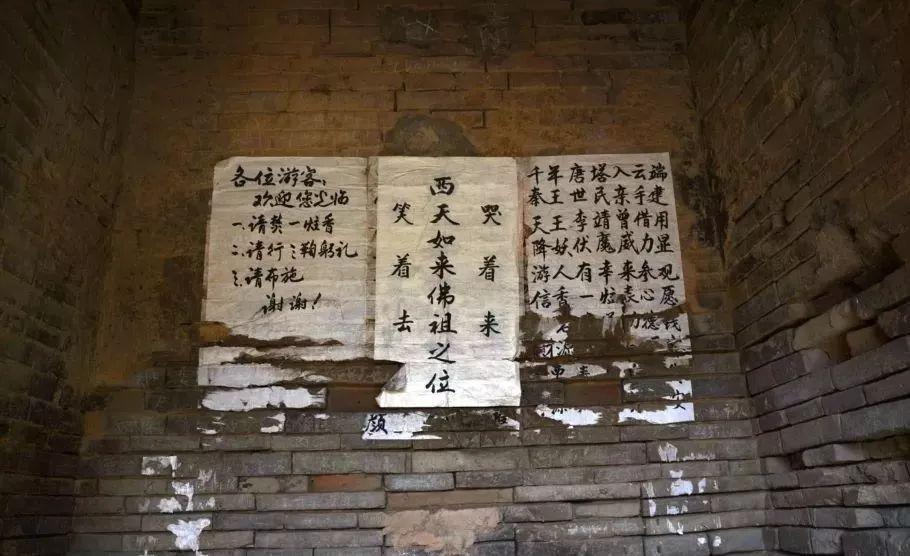 各位游客:
欢迎您光临
一.请焚一炷香
二.请行三鞠躬礼
三.请布施
谢谢!
哭着来
西天如来佛祖之位
笑着去
千年唐塔入云端
秦王世民亲手建
天王李靖曾借用
降妖伏魔威力显
游人有幸来参观
信香一炷表心愿
颜